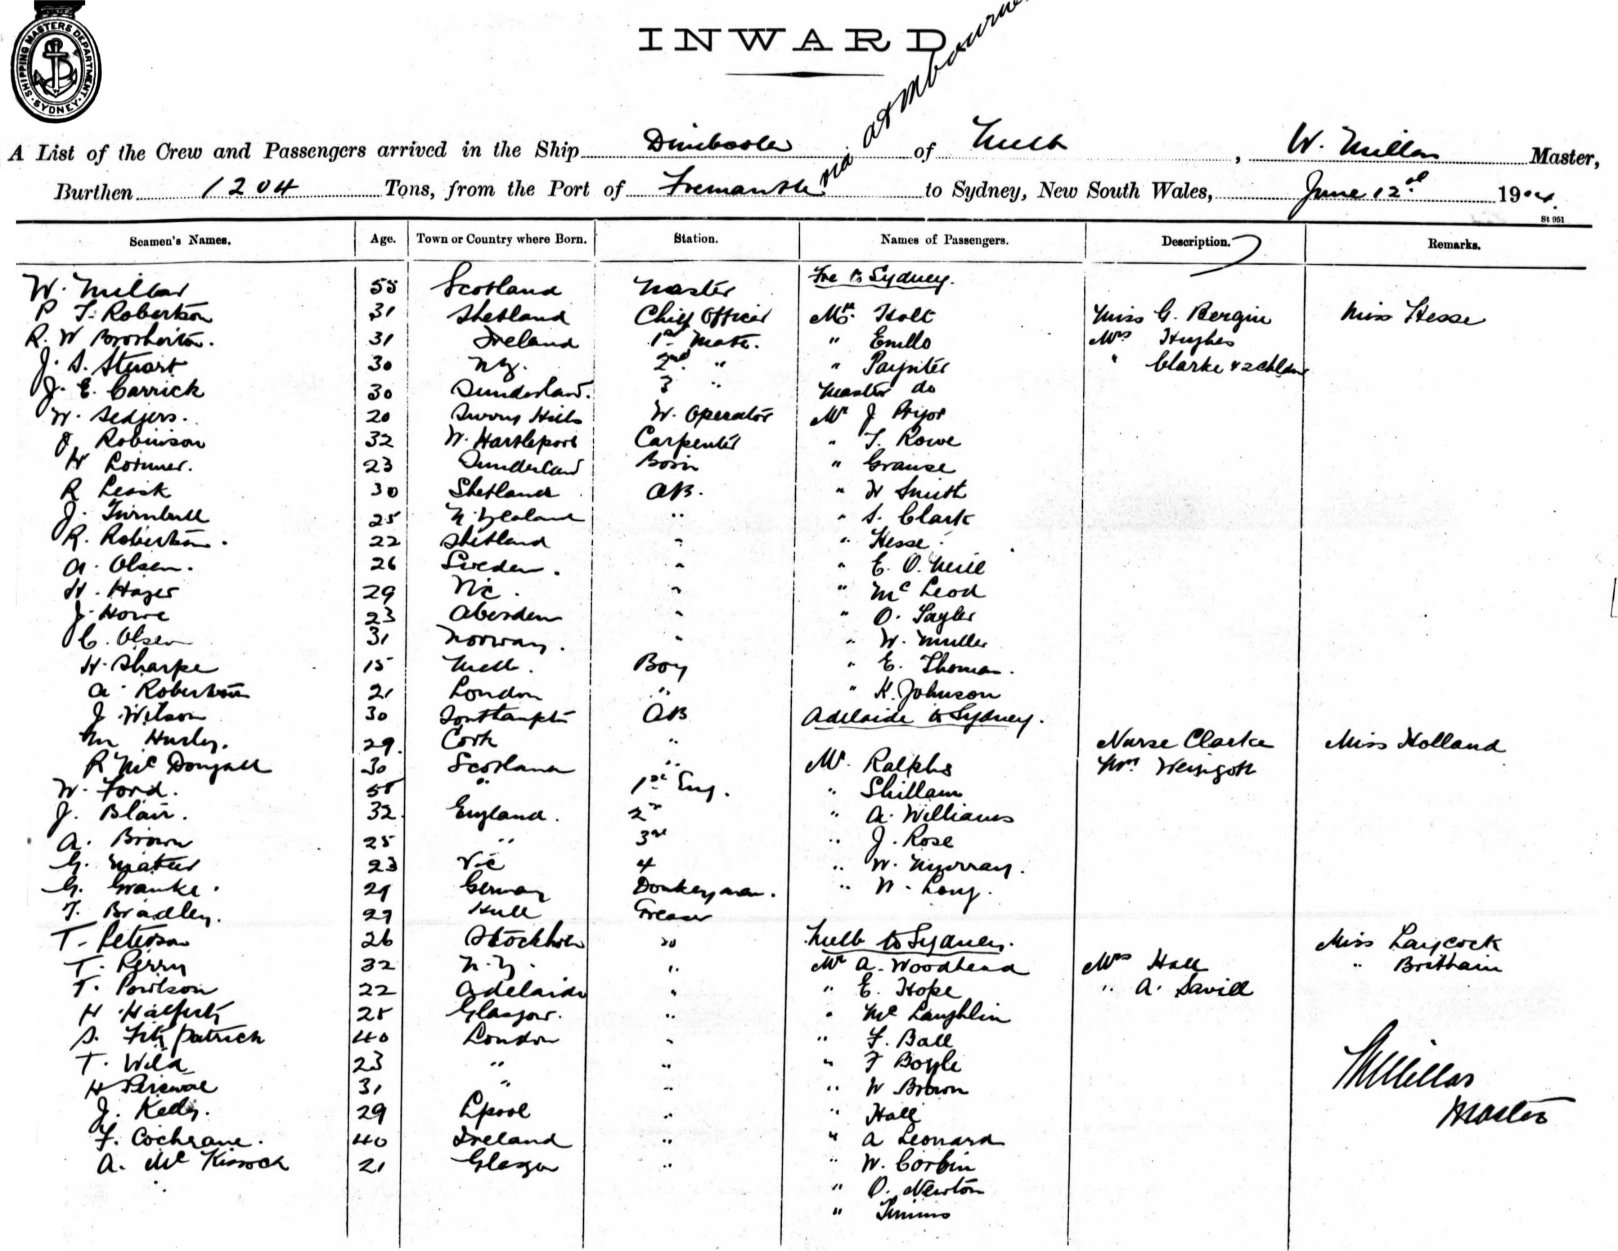 SHIPPING MASTERS DEPARTMENT. SYDNEY.
INWARD
A List of the Crew and Passengers arrived in the Ship Dimboola of Melb, W. Millar Master,
via
Burthen 1204 Tons, from the Port of Fremantle to Sydney, New South Wales, June 12th 190
St 951
Seamen's Names. Age. Town or Country where Born. Station. Names of Passengers. Description. Remarks.
Fre to Sydney.
W. Millar 55 Scotland Master
P T. Robertson 31 Shetland Chief Officer Mr. Holt Miss G. Bergin Miss Hesse
R. W 31 Ireland 1st Mate. " Mrs Hughes
J. S. Stuart 30 N.Z. 2nd " " Paynter " Clarke + 2 chldn
J. E. Carrick 30 Sunderland. 3 " Master do
W. Sedgers. 20 Surry Hills W. Operator Mr J. Pryor
J. Robinson 32 W. Hartlepool Carpenter " T. Rowe
H Lorimer. 23 Sunderland Bosn "
R Leask 30 Shetland AB. " W Smith
J. Turnbull 25 N. Zealand " " S. Clark
R. Robertson. 22 Shetland " " Hesse
A. Olsen. 26 Sweden. " " E. O. Neill
H. Hager 29 Vic. " " Mc Leod
J. Howe 23 Aberdeen " " O. Tayler
C. Olsen 31 Norway. " " W. Muller
H. Sharpe 15 Melb. Boy " E. Thomas.
A. Robertson 21 London " " K. Johnson
J. Wilson 30 Southampton AB Adelaide to Sydney.
M Hurley. 29 Cork " Nurse Clarke Miss Holland
R McDougall 30 Scotland " Mr. Ralphs
W. Ford. 55 " 1st Eng. " Shillam
J. Blair. 32 England. 2nd " A. Williams
A. Brown 25 " 3rd " J. Rose
G. 23 Vic 4 " W. Murray.
G. Franke. 29 Germany Donkeyman. " W. Long.
T. Bradley. 29 Hull Greaser
T. Peterson 26 Stockholm do Melb to Sydney. Miss Laycock
T. Perry 32 N.Z. " Mr A. Woodhead Mrs Hall " Brittain
T. Powlson 22 Adelaide " " E. Hope " A. Savill
H. 25 Glasgow. " " Mc Laughlin
S. Fitzpatrick 40 London " " F. Ball
T. Wild 23 " " " F Boyle
H Percival 31 " " " W Brown
J. Kelly. 29 Lpool " " Hall
F. Cochrane. 40 Ireland " " A Leonard
A. Mc Kissock 21 Glasgow " " W. Corbin
" O. Newton
" Timms
W Millar
Master